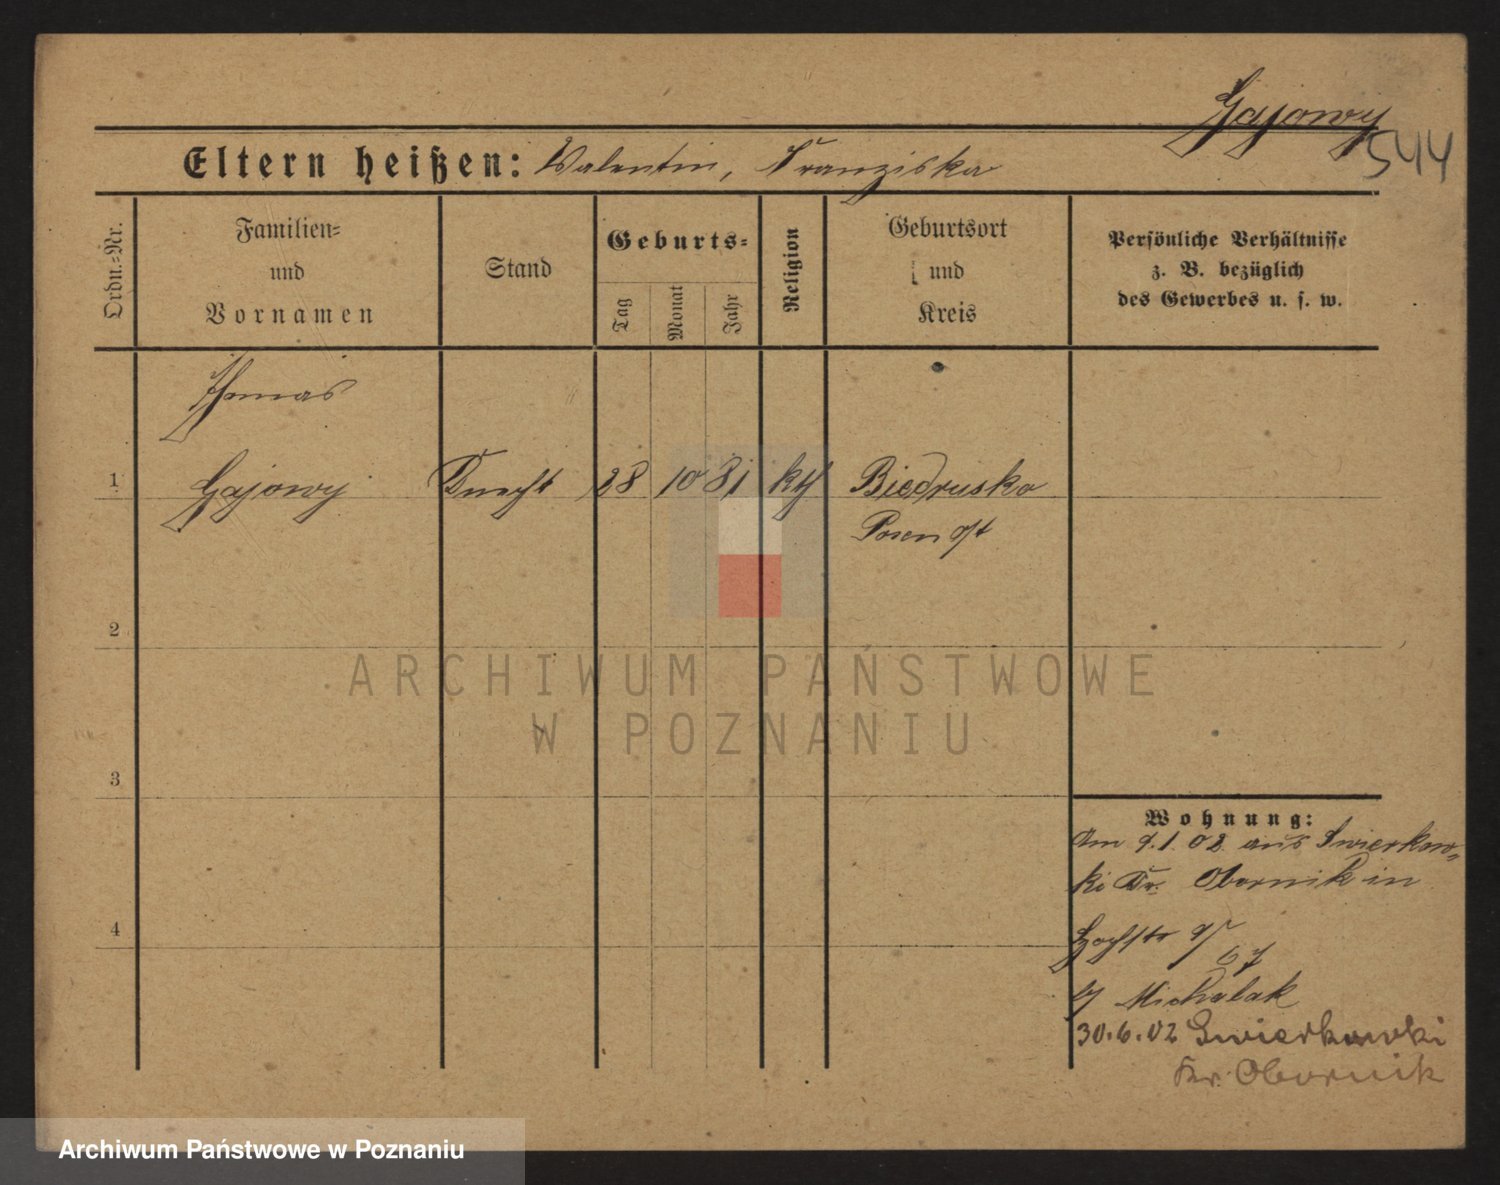 Gajowy
544
Eltern heißen: Valentin, Franziska
Ordn.-Nr.
Familien-
und
Vornamen
Stand
Geburts-
Tag
Monat
Jahr
Religion
Geburtsort
und
Kreis
Persönliche Verhältnisse
z. B. bezüglich
des Gewerbes u. s. w.
Thomas
1 Gajowy Knecht 28 10 81 kth Biedrusko
Posen Ost
2
3
4
Wohnung:
Am 9.1.02 aus Swierkow-
ki Kr. Obornik in
Hochstr
67
b/ Michalak
30.6.02 Swierkowki
Kr. Obornik
ARCHIWUM PAŃSTWOWE
W POZNANIU
Archiwum Państwowe w Poznaniu